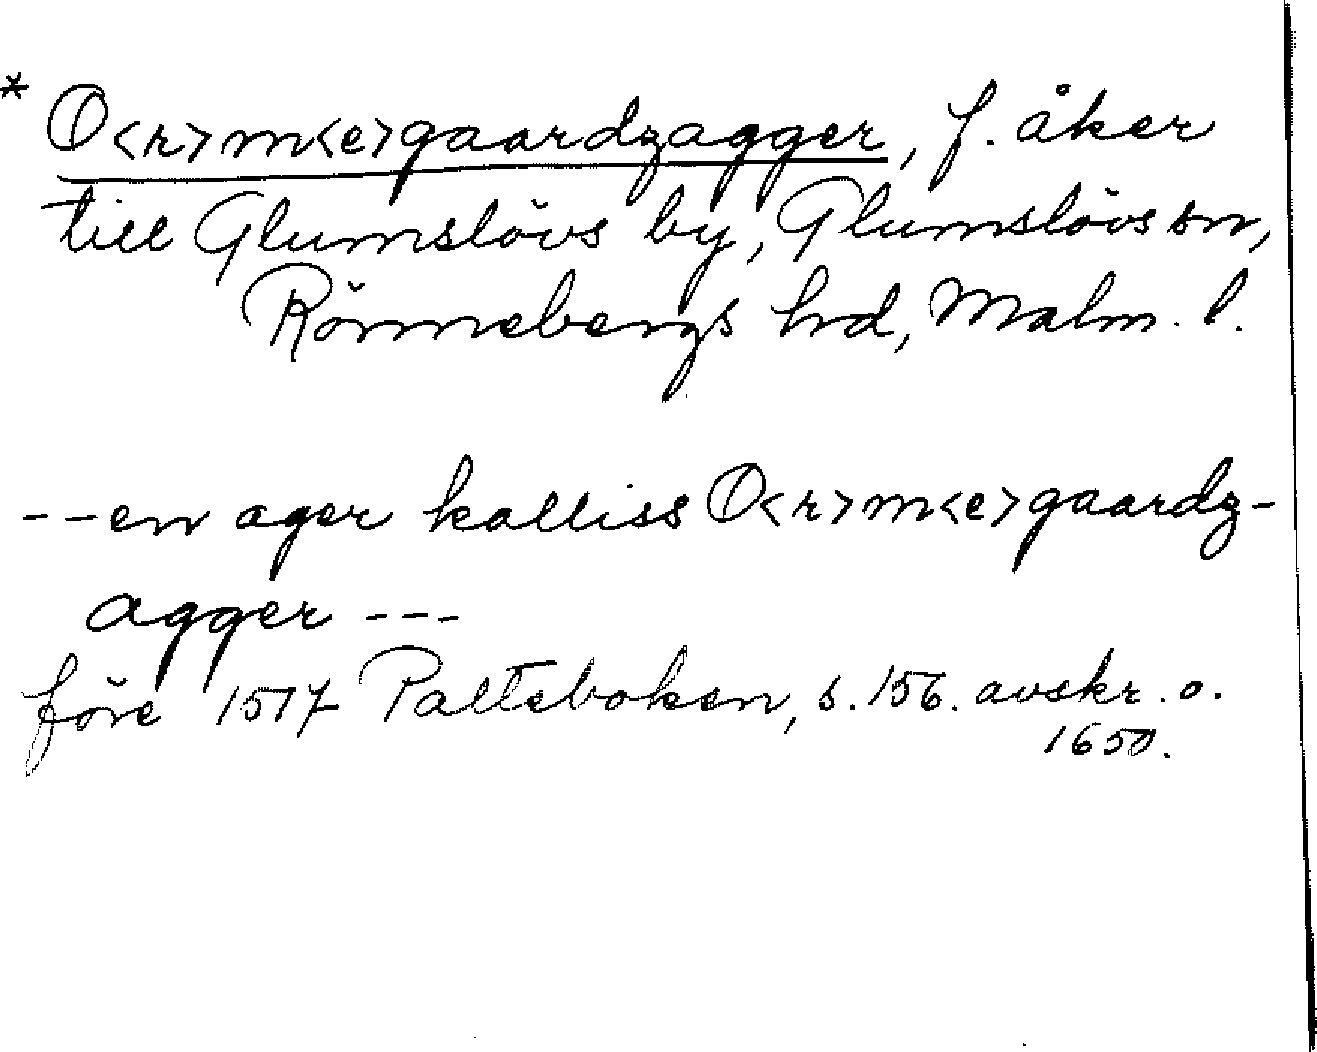 * O<r>m<e>gaardzagger, f. åker
till Glumslövs by, Glumslövs sn,
Rönnebergs hrd, Malm. l.
--en ager kalliss O<r>m<e>gaardz-
agger ---
före 1517 Palteboken, s. 156. avskr. o.
1650.